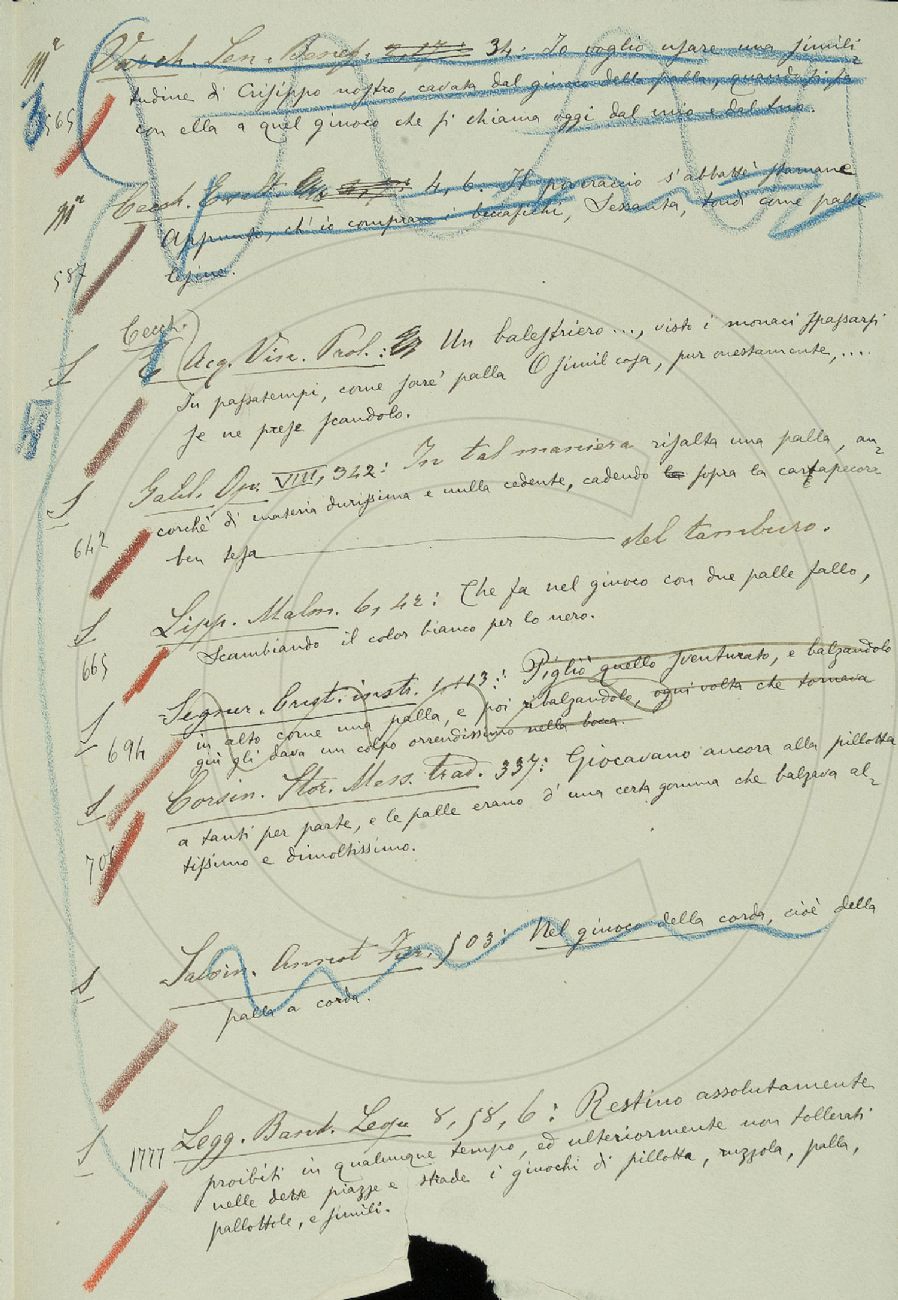 Mª Varch. Sen. Benef. 34: Io voglio usare una simili=
3 tudine di Crisippo nostro, cavata dal giuoco della palla, quando si fa
565 con ella a quel giuoco che si chiama oggi dal mio e dal tuo.
Mª Cecch. 4, 6: Il poveraccio s'abbassè stamane
Appunto, ch'io comprava i beccafichi, Sessanta, tondi come palle
587 lesine.
Cecch.
S Acq. Vin. Prol.: Un balestriero..., visto i monaci spassarsi
In passatempi, come fare' palla O simil cosa, pur onestamente,....
Se ne prese scandolo.
S Galil. Op. VIII, 342: In tal maniera risalta una palla, an=
corchè di materia durissima e nulla cedente, cadendo sopra la cartapecora
642 ben tesa del tamburo.
S Lipp. Malm. 6, 42: Che fa nel giuoco con due palle fallo,
665 Scambiando il color bianco per lo nero.
S Segner. Crist. instr. 1, 113: Pigliò quello sventurato, e balzandolo
694 in alto come una palla, e poi ribalzandolo, ogni volta che tornava
giù gli dava un colpo orrendissimo nella bocca.
S Corsin. Stor. Mess. trad. 337: Giocavano ancora alla pillotta
a tanti per parte, e le palle erano d'una certa gomma che balzava al=
tissimo e dimoltissimo.
S Salvin. Annot. Fier. 503: Nel giuoco della corda, cioè della
palla a corda.
S 1777 Legg. Band. Leop. 8, 58, 6: Restino assolutamente
proibiti in qualunque tempo, ed ulteriormente non tollerati
nelle dette piazze e strade i giuochi di pillotta, ruzzola, palla,
pallottole, e simili.